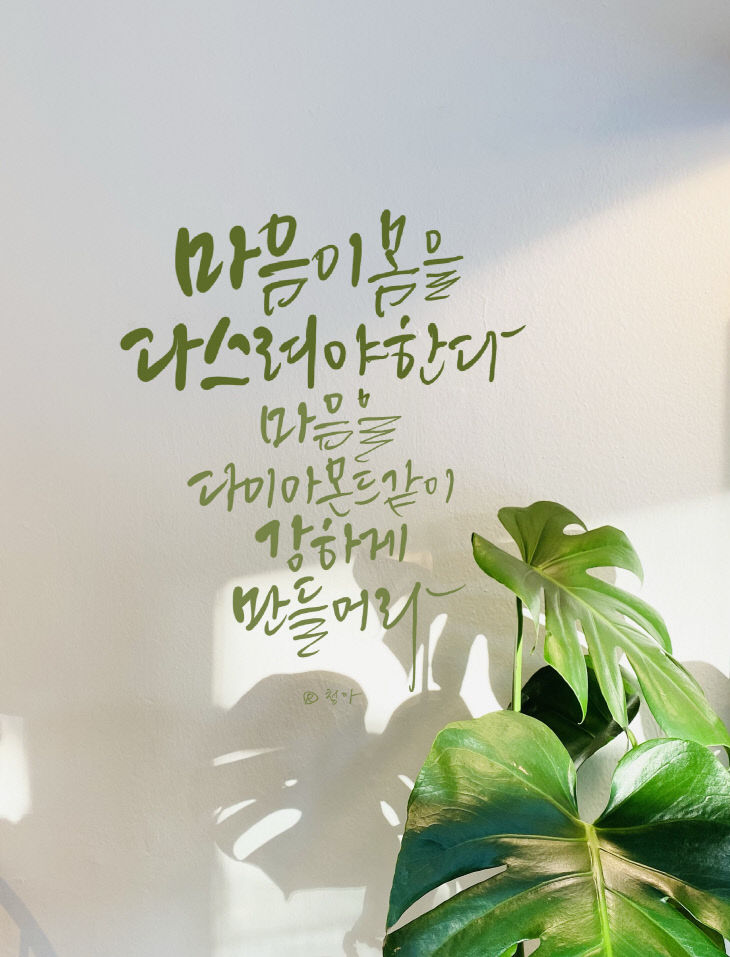 마음이 몸을
다스려야한다
마음을
다이아몬드같이
강하게
만들어라
청아